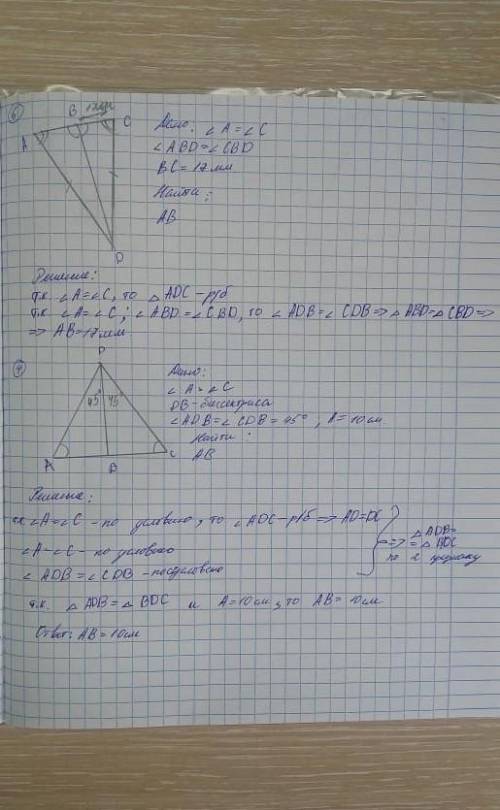 6
B 17мм C
A
D
Дано: ∠A=∠C
∠ABD=∠CBD
BC=17мм
Найти:
AB
Решение:
т.к ∠A=∠C, то △ADC-р/б
т.к ∠A=∠C; ∠ABD=∠CBD, то ∠ADB=∠CDB=>△ABD=△CBD=>
=> AB=17мм
D
45° 45°
A B C
Дано:
∠A=∠C
DB-биссектриса
∠ADB=∠CDB=45°, A=10см
Найти:
AB
Решение:
∠A=∠C - по условию, то ∠ADC-р/б => AD=DC
∠A-∠C - по условию
∠ADB=∠CDB - по условию
=> △ADB=
=△BDC
по 2 признаку
т.к. △ADB=△BDC и A=10см, то AB=10см
Ответ: AB=10см